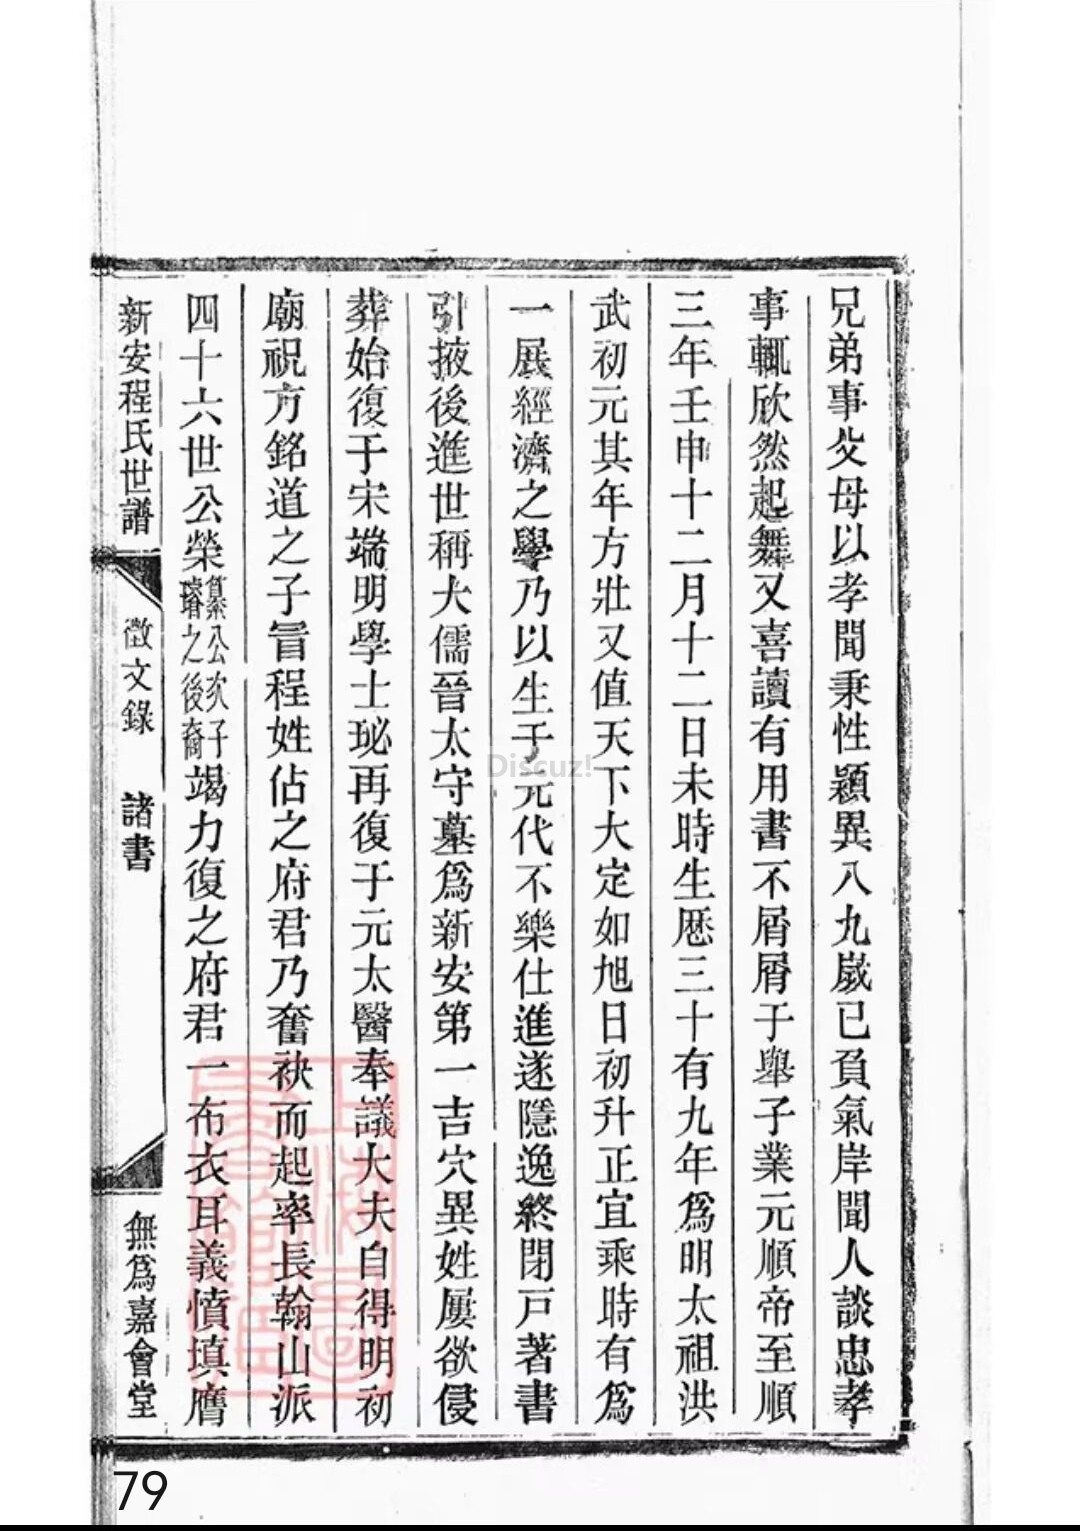 兄弟事父母以孝聞秉性穎異八九歲已負氣岸聞人談忠孝
事輒欣然起舞又喜讀有用書不屑屑于舉子業元順帝至順
三年壬申十二月十二日未時生歷三十有九年爲明太祖洪
武初元其年方壯又值天下大定如旭日初升正宜乘時有爲
一展經濟之學乃以生于元代不樂仕進遂隱逸終閉戸著書
引掖後進世稱大儒晉太守墓爲新安第一吉穴異姓屢欲侵
葬始復于宋端明學士珌再復于元太醫奉議大夫自得明初
廟祝方銘道之子冒程姓佔之府君乃奮袂而起率長翰山派
四十六世公榮纂公次子璿之後裔竭力復之府君一布衣耳義憤填膺
新安程氏世譜 徵文錄 諸書 無爲嘉會堂
Discuz!
79